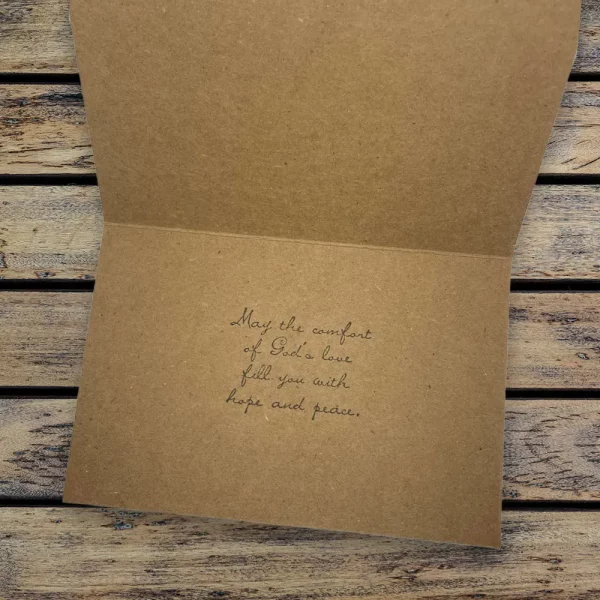 May the comfort
of God's love
fill you with
hope and peace.